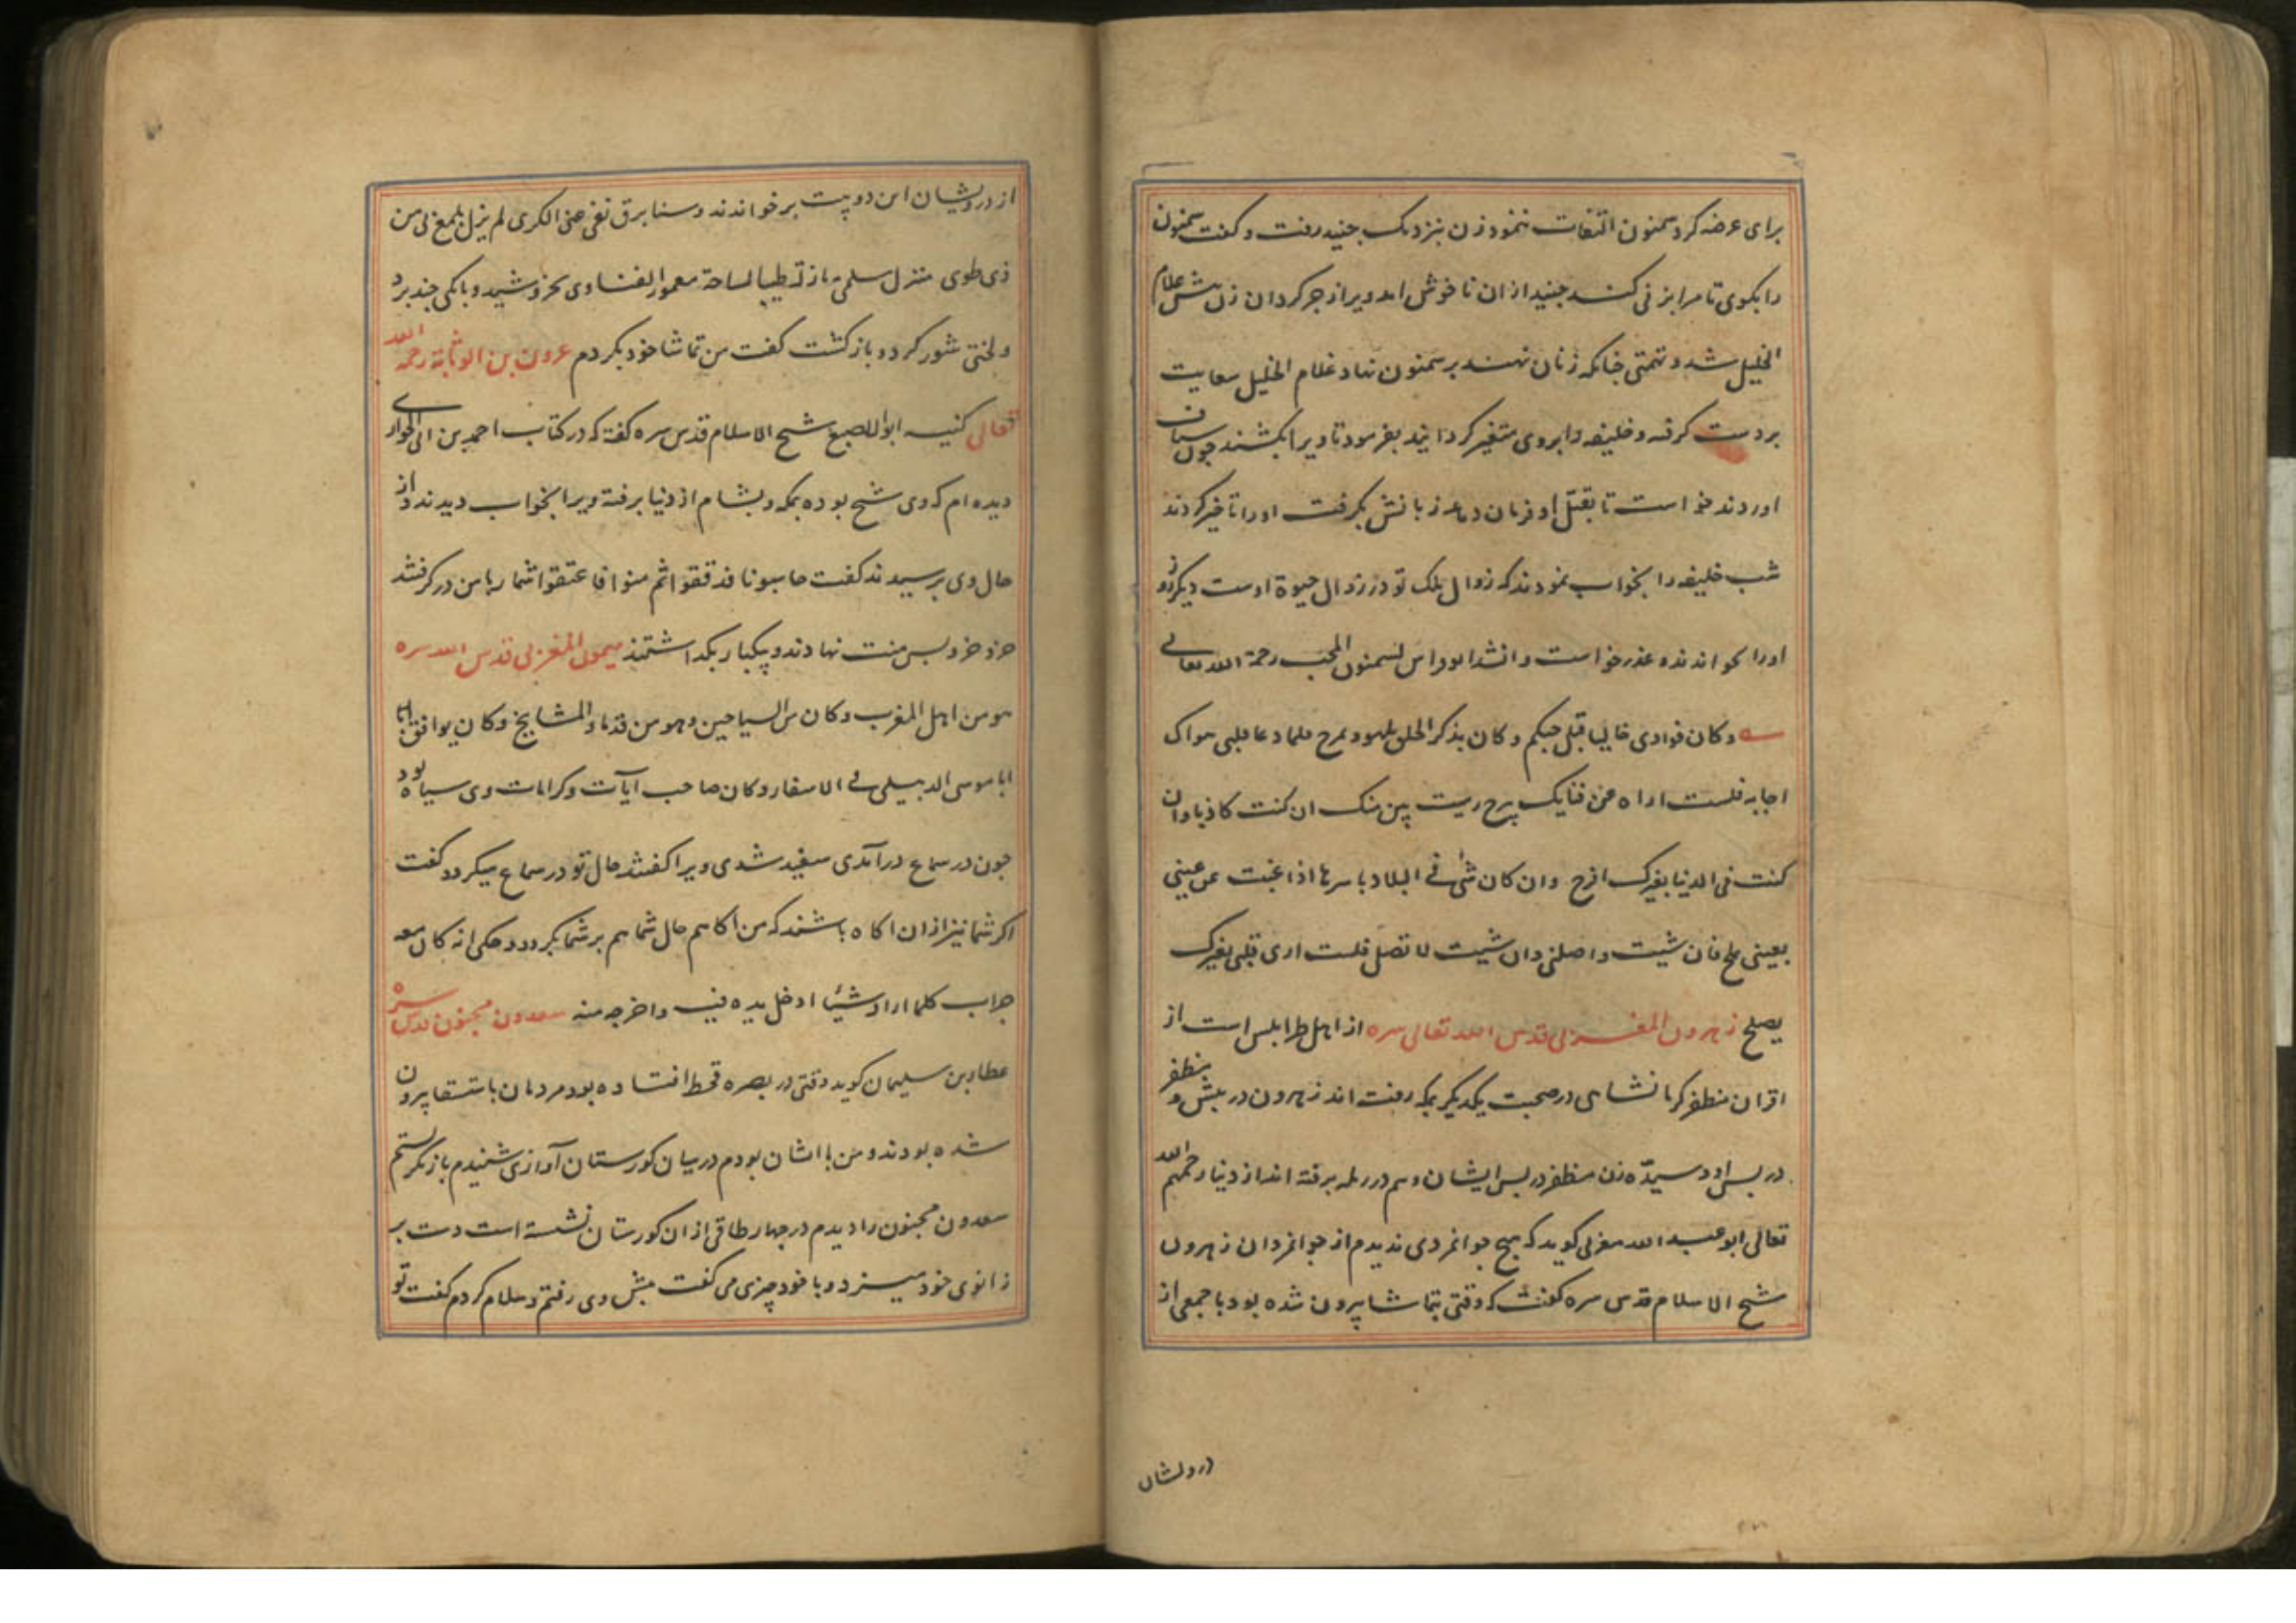 برای عرضه کرد سمنون التفات ننمود زن بنزدیک جنید رفت و گفت سمنون
را بکوی تا مرا بزنی کند جنید از ان ناخوش امد ویرا زجر کرد ان زن پیش غلام
الخلیل شد و تهمتی چنانکه زنان نهند بر سمنون نهاد غلام الخلیل سعایت
بر دست کرفته و خلیفه را بروی متغیر کردانید بفرمود تا ویرا بکشند چون سیاف
اوردند خواست تا بقتل او فرمان دهد زبانش بکرفت او را تاخیر کردند
شب خلیفه را بخواب نمودند که زوال ملک تو در زوال حیوة اوست دیگر روز
اورا بخواندند و عذر خواست وانشد ابو فراس لسمنون المحب رحمة الله تعالی
وکان فوادی خالیا قبل حبکم وکان بذکر الخلق یلهو ویمرح فلما دعا قلبی هواک
اجابه فلست اراه عن فنایک یبرح رمیت ببین منک ان کنت کاذبا وان
کنت فی الدنیا بغیرک افرح وان کان شئ فی البلاد باسرها اذا غبت عن عینی
بعینی یملح فان شیت واصلنی وان شیت لا تصل فلست اری قلبی بغیرک
یصلح زهرون المغربی قدس الله تعالی سره از اهل طرابلس است از
اقران مظفر کرمانشاهی در صحبت یکدیکر بمکه رفته اند زهرون در پیش و مظفر
در پس او و سیده زن مظفر در پس ایشان و هم در رمله برفته اند از دنیا رحمهم الله
تعالی ابو عبد الله مغربی کوید که هیچ جوانمردی ندیدم از جوانمردان زهرون
شیخ الاسلام قدس سره گفت که وقتی بتماشا بیرون شده بود با جمعی از
درویشان
از درویشان این دو بیت برخواندند وسنا برق نفی عنی الکری لم یزل یلمع لی من
ذی طوی منزل سلمی به نازلة طیب الساحة معمور الفنا وی بخروشید و بانکی چند برد
ولختی شور کرد و باز کشت کفت من تماشا خود بکردم عرون بن الوثابة رحمه الله
تعالی کنیه ابوالاصبع شیخ الاسلام قدس سره گفته که در کتاب احمد بن ابی الحواری
دیده ام که وی شیخ بوده بمکه و بشام از دنیا برفته ویرا بخواب دیدند و از
حال وی پرسیدند گفت حاسبونا فدققوا ثم منوا فاعتقوا شمار با من در کرفتند
خرد خرد پس منت نهادند و یکبار بکذاشتند میمون المغربی قدس الله سره
هو من اهل المغرب وکان من السیاحین وهو من قدماء المشایخ وکان یوافق
ابا موسی الدبیلی فی الاسفار وکان صاحب آیات وکرامات وی سیاه بود
چون در سماع درآمدی سفید شدی ویرا گفتند حال تو در سماع میکردد گفت
اکر شما نیز از ان اکاه باشند که من اکاهم حال شما هم بر شما بکردد وحکی انه کان معه
جراب کلما اراد شیئا ادخل یده فیه واخرجه منه سعدون مجنون قدس سره
عطاء بن سلیمان کوید وقتی در بصره قحط افتاده بود مردمان باستسقا بیرون
شده بودند و من با ایشان بودم در میان کورستان آوازی شنیدم باز نکرستم
سعدون مجنون را دیدم در چهار طاقی از ان کورستان نشسته است دست بر
زانوی خود میزد و با خود چیزی می گفت پیش وی رفتم و سلام کردم گفت تو